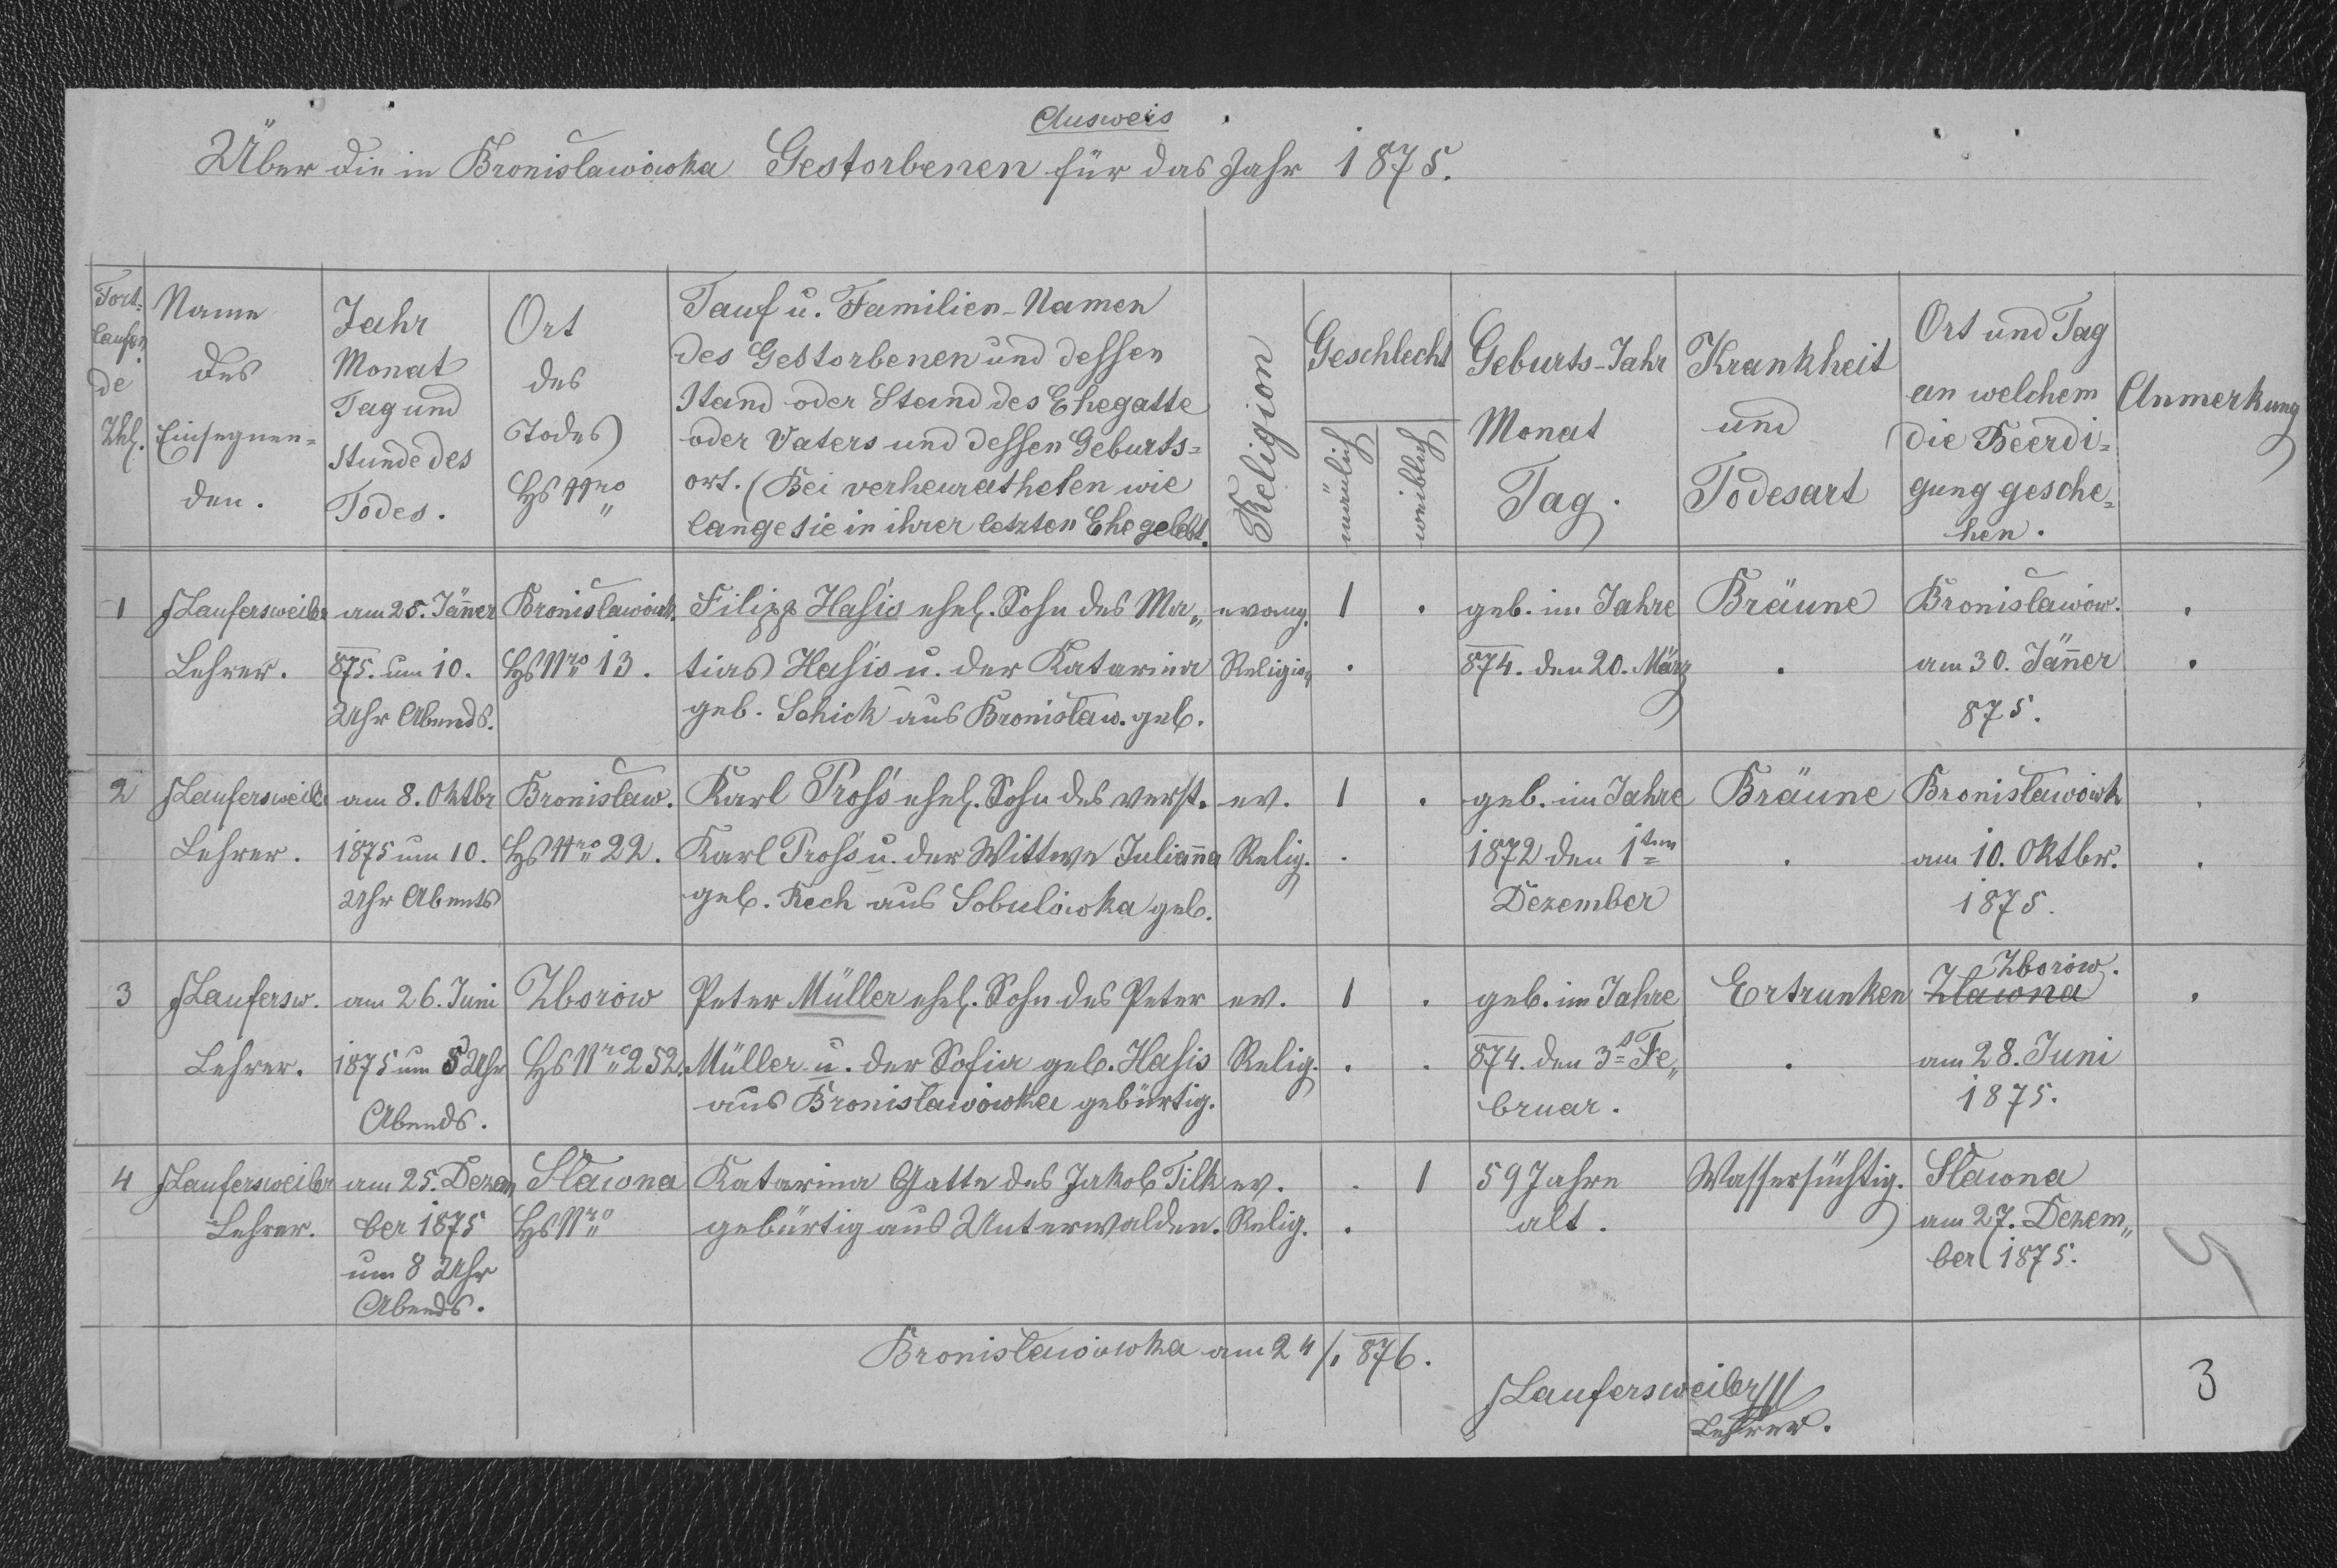 Ausweis
Über die in Bronislawówka Gestorbenen für das Jahr 1875.
Fort-
laufen
de
Zhl.
Name
des
Einsegnen-
den.
Jahr
Monat
Tag und
Stunde des
Todes.
Ort
des
Todes
Hs Nro
Tauf u. Familien-Namen
des Gestorbenen und dessen
Stand oder Stand des Ehegatte
oder Vaters und dessen Geburts-
ort. (Bei verheuratheten wie
lange sie in ihrer letzten Ehe gelebt.
Religion
Geschlecht
männlich
weiblich
Geburts-Jahr
Monat
Tag.
Krankheit
und
Todesart
Ort und Tag
an welchem
die Beerdi-
gung gesche-
hen.
Anmerkung
1 Laufersweiler am 25. Jänner Bronislawówk. Filipp Hasis ehel. Sohn des Ma- evang. 1 . geb. im Jahre Bräune Bronislawów. .
Lehrer. 875. um 10. Hs Nro 13. tias Hasis u. der Katarina Religion . 874. den 20. März . am 30. Jänner .
Uhr Abends. geb. Schick aus Bronislaw. geb. 875.
2 Laufersweiler am 8. Oktbr Bronislaw. Karl Pross ehel. Sohn des verst. ev. 1 . geb. im Jahre Bräune Bronislawówk .
Lehrer. 1875 um 10. Hs Nro 22. Karl Pross u. der Wittwe Julianna Relig. . 1872 den 1ten . am 10. Oktbr. .
Uhr Abents geb. Rech aus Sobulówka geb. Dezember 1875.
Zborów.
3 Laufersw. am 26. Juni Zborów Peter Müller ehel. Sohn des Peter ev. 1 . geb. im Jahre Ertrunken Zlawna .
Lehrer. 1875 um 5 Uhr Hs Nro 252. Müller u. der Sofia geb. Hasis Relig. . . 874. den 3t Fe- . am 28. Juni
Abends. aus Bronislawówka gebürtig. bruar. 1875.
4 Laufersweiler am 25. Dezem Slawna Katarina Gatte des Jakob Tilk ev. . 1 59 Jahre Wassersüchtig. Slawna
Lehrer. ber 1875 Hs Nro gebürtig aus Unterwalden. Relig. . alt. am 27. Dezem-
um 8 Uhr ber 1875.
Abends.
Bronislawówka am 24/1 876.
Laufersweiler
Lehrer.
3